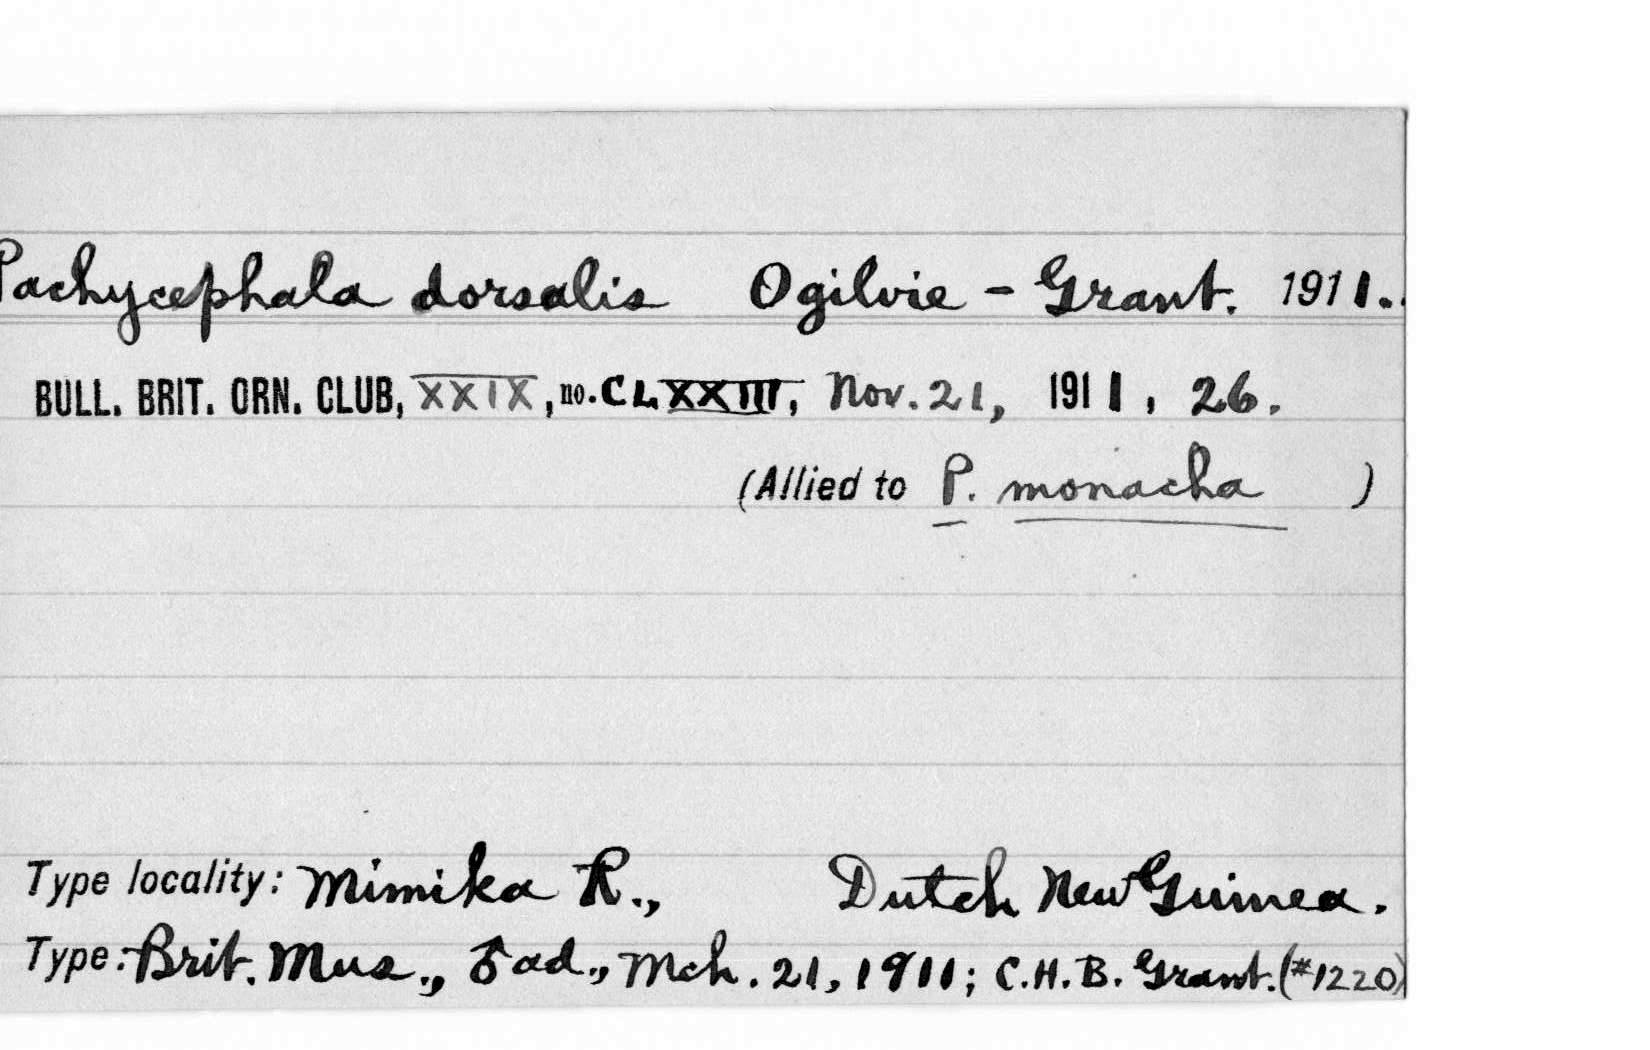 Pachycephala dorsalis Ogilvie-Grant. 1911.
BULL. BRIT. ORN. CLUB, XXIX, no. CLXXIII, Nov. 21, 1911, 26.
(Allied to P. monacha )
Type locality: Mimika R., Dutch New Guinea.
Type: Brit. Mus., ♂ ad., Mch. 21, 1911; C.H.B. Grant. (#1220)